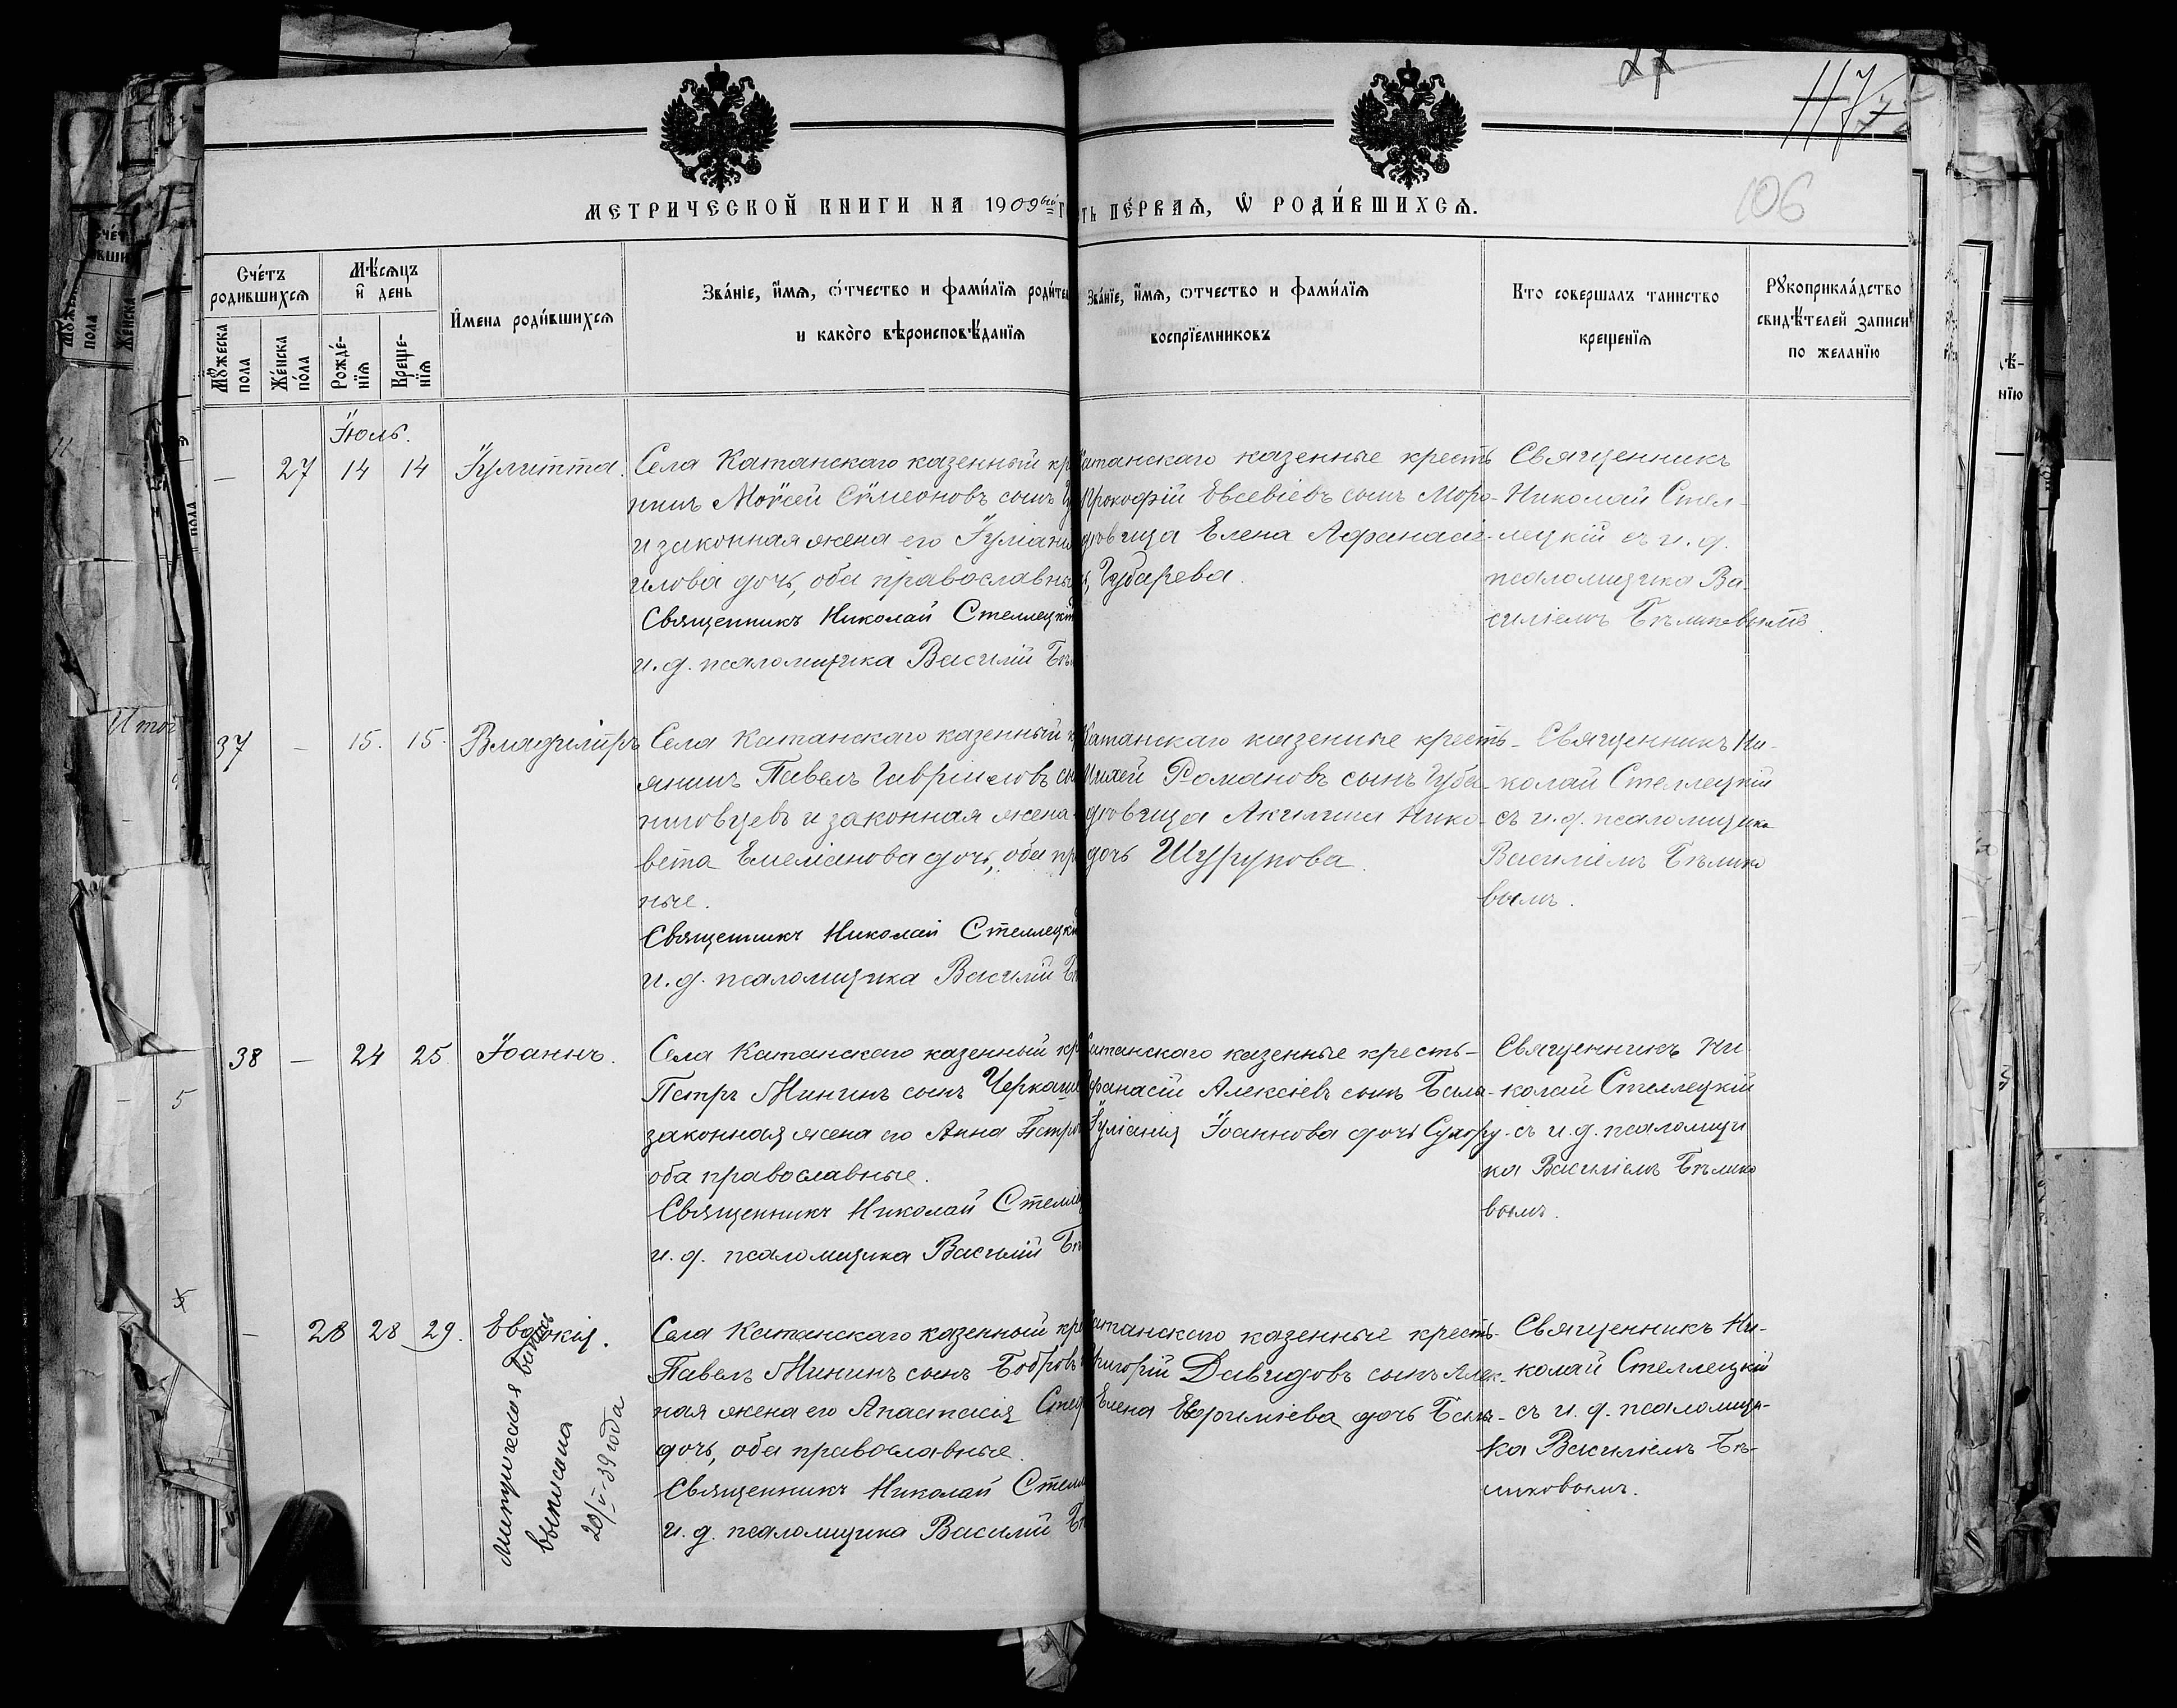 27
117
106
МЕТРИЧЕСКОЙ КНИГИ НА 1909ый Г
ТЬ ПЕ́РВАѦ, Ѡ РОДИ́ВШИХСѦ.
Сче́тъ родившихсѧ
Мꙋ́жеска пола
Же́нска по́ла
Мѣ́сѧцъ и҆ день
Рожде́-нїѧ
Креще-нїѧ
И҆мена роди́вшихсѧ
Зва́нїе, и҆́мѧ, ѻ҆́тчество и фами́лїѧ роди́те
и како́го вѣроисповѣ́данїѧ
Зва́нїе, и҆́мѧ, ѻтчество и фами́лїѧ
воспрїе́мниковъ
Кто совершалъ таинство
крещенїѧ
Рꙋкоприкла́дство
свидѣ́телей записи
по желанїю
Іюль.
— 27 14 14 Іулитта.
Села Катанскаго казенный кр
нинъ Моѵсей Сѵмеоновъ сынъ
и законная жена его Іуліан
илова дочь, оба православн
Священникъ Николай Стеллецкій
и.д. псаломщика Василій Бѣ
атанскаго казенные кресть
Прокофій Евсевіевъ сынъ Моро-
дѣвица Елена Афанасіе-
Губарева.
Священникъ
Николай Стел-
лецкій съ и.д.
псаломщика Ва-
силіемъ Бѣликовымъ.
37 — 15. 15. Владиміръ
Села Катанскаго казенный к
янинъ Павелъ Гавріиловъ сы
ниловцевъ и законная жена
вета Емеліанова дочь, оба пр
ные.
Священникъ Николай Стеллецкій
и.д. псаломщика Василій Бѣ
Катанскаго казенные кресть-
Михей Романовъ сынъ Губа-
дѣвица Акилина Нико-
дочь Шурупова.
Священникъ Ни-
колай Стеллецкій
съ и.д. псаломщика
Василіемъ Бѣлико
вымъ.
38 — 24 25. Іоаннъ.
Села Катанскаго казенный кр
Петръ Мининъ сынъ Черкаши
законная жена его Анна Петро
оба православные.
Священникъ Николай Стелле
и.д. псаломщика Василій Бѣ
атанскаго казенные кресть-
фанасій Алексіевъ сынъ Бала-
Іуліанія Іоаннова дочь Сухору-
Священникъ Ни
колай Стеллецкій
съ и.д. псаломщи
ка Василіемъ Бѣлико
вымъ.
— 28 28 29. Евдокія.
Села Катанскаго казенный кре
Павелъ Мининъ сынъ Бобровъ
ная жена его Анастасія Стеф
дочь, оба православные.
Священникъ Николай Стелл
и.д. псаломщика Василій Бѣ
атанскаго казенные кресть-
Григорій Давидовъ сынъ Алек-
Елена Евфиміева дочь Бала-
Священникъ Ни-
колай Стеллецкій
съ и.д. псаломщи-
ка Василіемъ Бѣ-
ликовымъ.
выписана
20/V-39 года